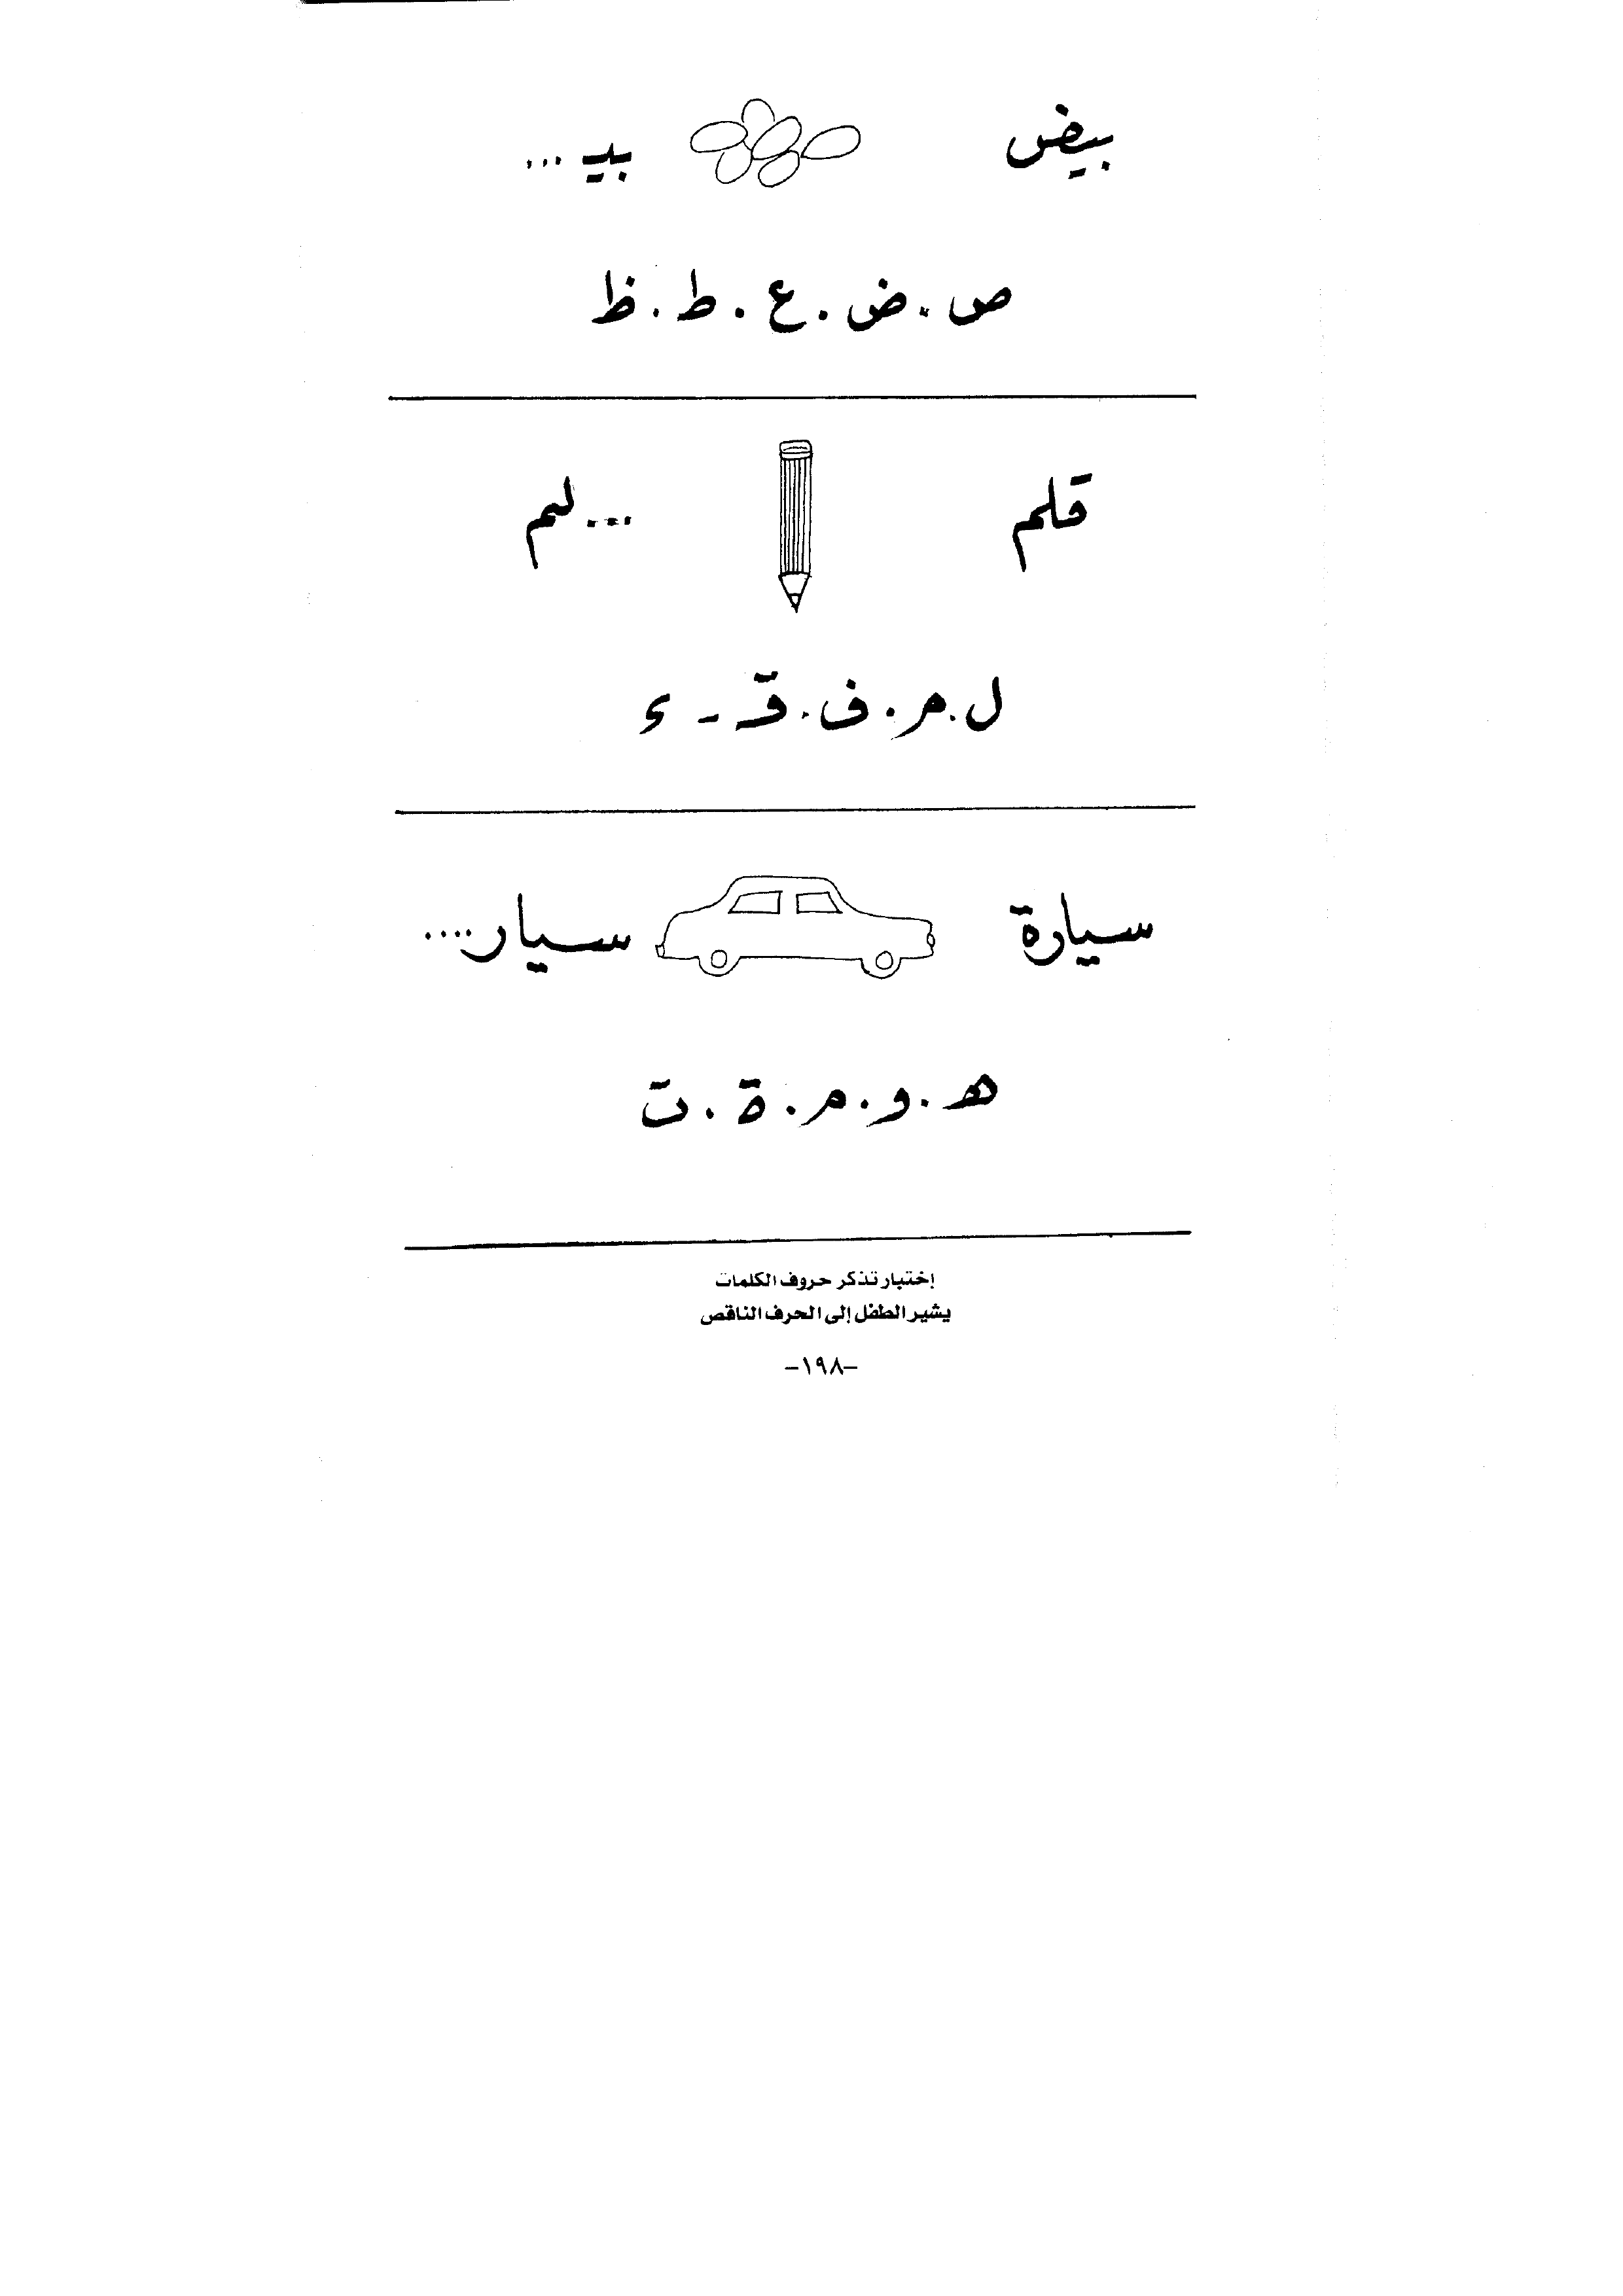 بيض بيـ ...
ص . ض . ع . ط . ظ
قلم ... لم
ل . م . ف . قـ - ء
سيارة سيار ....
هـ . و . م . ة . ت
إختبار تذكر حروف الكلمات
يشير الطفل إلى الحرف الناقص
-١٩٨-